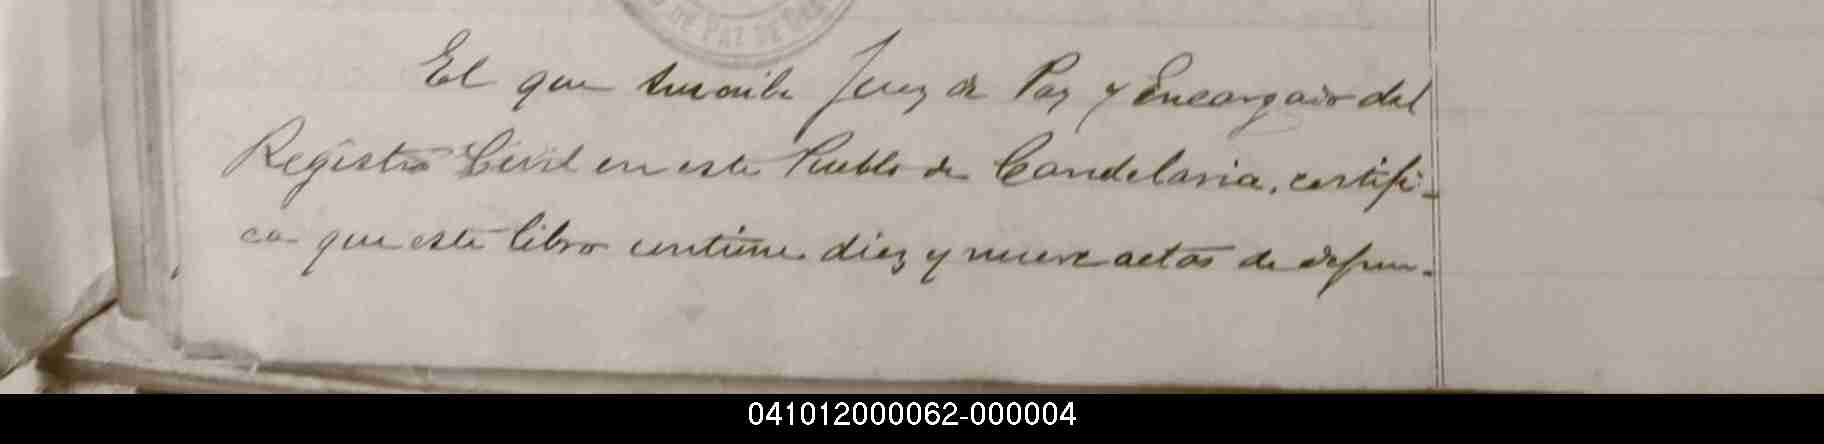 DE PAZ DE
El que suscribe Juez de Paz y Encargado del
Registro Civil en este Pueblo de Candelaria, certifi-
ca que este libro contiene diez y nueve actas de defun-
041012000062-000004